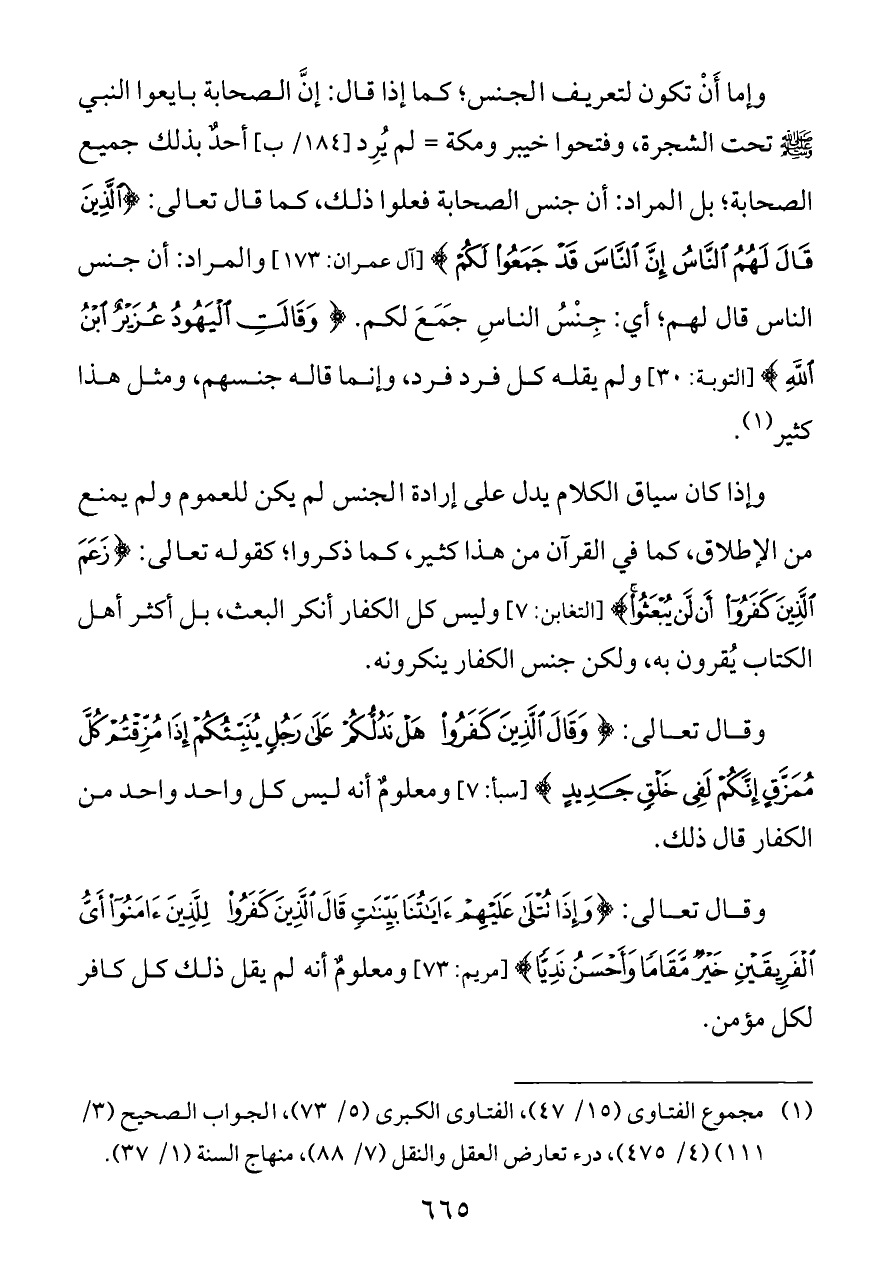 وإما أَنْ تكون لتعريف الجنس؛ كما إذا قال: إنَّ الصحابة بايعوا النبي
ﷺ تحت الشجرة، وفتحوا خيبر ومكة = لم يُرِد [١٨٤/ ب] أحدٌ بذلك جميع
الصحابة؛ بل المراد: أن جنس الصحابة فعلوا ذلك، كما قال تعالى: ﴿ٱلَّذِينَ
قَالَ لَهُمُ ٱلنَّاسُ إِنَّ ٱلنَّاسَ قَدْ جَمَعُوا۟ لَكُمْ﴾ [آل عمران: ١٧٣] والمراد: أن جنس
الناس قال لهم؛ أي: جِنْسُ الناسِ جَمَعَ لكم. ﴿وَقَالَتِ ٱلْيَهُودُ عُزَيْرٌ ٱبْنُ
ٱللَّهِ﴾ [التوبة: ٣٠] ولم يقله كل فرد فرد، وإنما قاله جنسهم، ومثل هذا
كثير(١).
وإذا كان سياق الكلام يدل على إرادة الجنس لم يكن للعموم ولم يمنع
من الإطلاق، كما في القرآن من هذا كثير، كما ذكروا؛ كقوله تعالى: ﴿زَعَمَ
ٱلَّذِينَ كَفَرُوٓا۟ أَن لَّن يُبْعَثُوا۟ۚ﴾ [التغابن: ٧] وليس كل الكفار أنكر البعث، بل أكثر أهل
الكتاب يُقرون به، ولكن جنس الكفار ينكرونه.
وقال تعالى: ﴿وَقَالَ ٱلَّذِينَ كَفَرُوا۟ هَلْ نَدُلُّكُمْ عَلَىٰ رَجُلٍ يُنَبِّئُكُمْ إِذَا مُزِّقْتُمْ كُلَّ
مُمَزَّقٍ إِنَّكُمْ لَفِى خَلْقٍ جَدِيدٍ﴾ [سبأ: ٧] ومعلومٌ أنه ليس كل واحد واحد من
الكفار قال ذلك.
وقال تعالى: ﴿وَإِذَا تُتْلَىٰ عَلَيْهِمْ ءَايَـٰتُنَا بَيِّنَـٰتٍ قَالَ ٱلَّذِينَ كَفَرُوا۟ لِلَّذِينَ ءَامَنُوٓا۟ أَىُّ
ٱلْفَرِيقَيْنِ خَيْرٌ مَّقَامًا وَأَحْسَنُ نَدِيًّا﴾ [مريم: ٧٣] ومعلومٌ أنه لم يقل ذلك كل كافر
لكل مؤمن.
(١) مجموع الفتاوى (١٥/ ٤٧)، الفتاوى الكبرى (٥/ ٧٣)، الجواب الصحيح (٣/
١١١) (٤/ ٤٧٥)، درء تعارض العقل والنقل (٧/ ٨٨)، منهاج السنة (١/ ٣٧).
٦٦٥